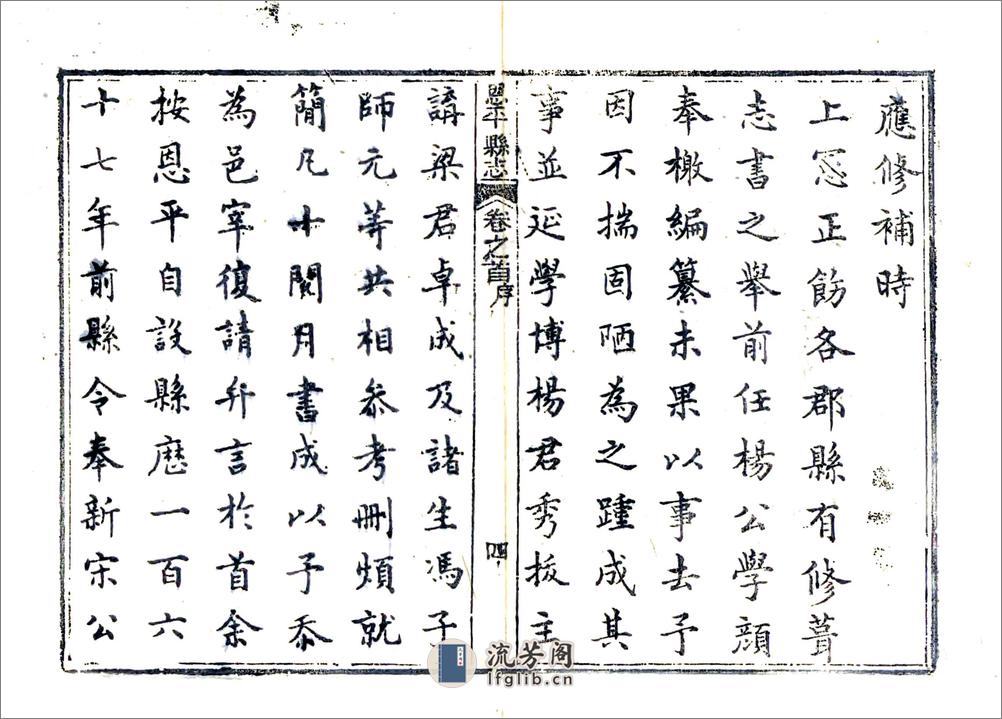 應修補時
上憲正飭各郡縣有修葺
志書之舉前任楊公學顔
奉檄編纂未果以事去予
因不揣固陋為之踵成其
事並延學博楊君秀拔主
縣志 卷之首 序 四
講梁君卓成及諸生馮子
師元等共相叅考刪煩就
簡凡十閱月書成以予忝
為邑宰復請弁言於首余
按恩平自設縣歴一百六
十七年前縣令奉新宋公
流芳阁
lfglib.cn